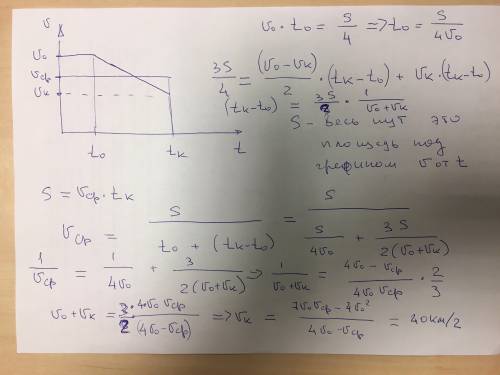 v
v₀
vср
vк
t₀ tк t
v₀ · t₀ = S/4 => t₀ = S/4v₀
3S/4 = (v₀ - vк)/2 · (tк - t₀) + vк · (tк - t₀)
(tк - t₀) = 3S/2 · 1/(v₀ + vк)
S - весь путь это
площадь под
графиком v от t
S = vср · tк
vср = S/(t₀ + (tк - t₀)) = S/(S/4v₀ + 3S/2(v₀ + vк))
1/vср = 1/4v₀ + 3/2(v₀ + vк) => 1/(v₀ + vк) = (4v₀ - vср)/(4v₀ vср) · 2/3
v₀ + vк = 3 · 4v₀ vср/2(4v₀ - vср) => vк = (7v₀vср - 4v₀²)/(4v₀ - vср) = 40км/г